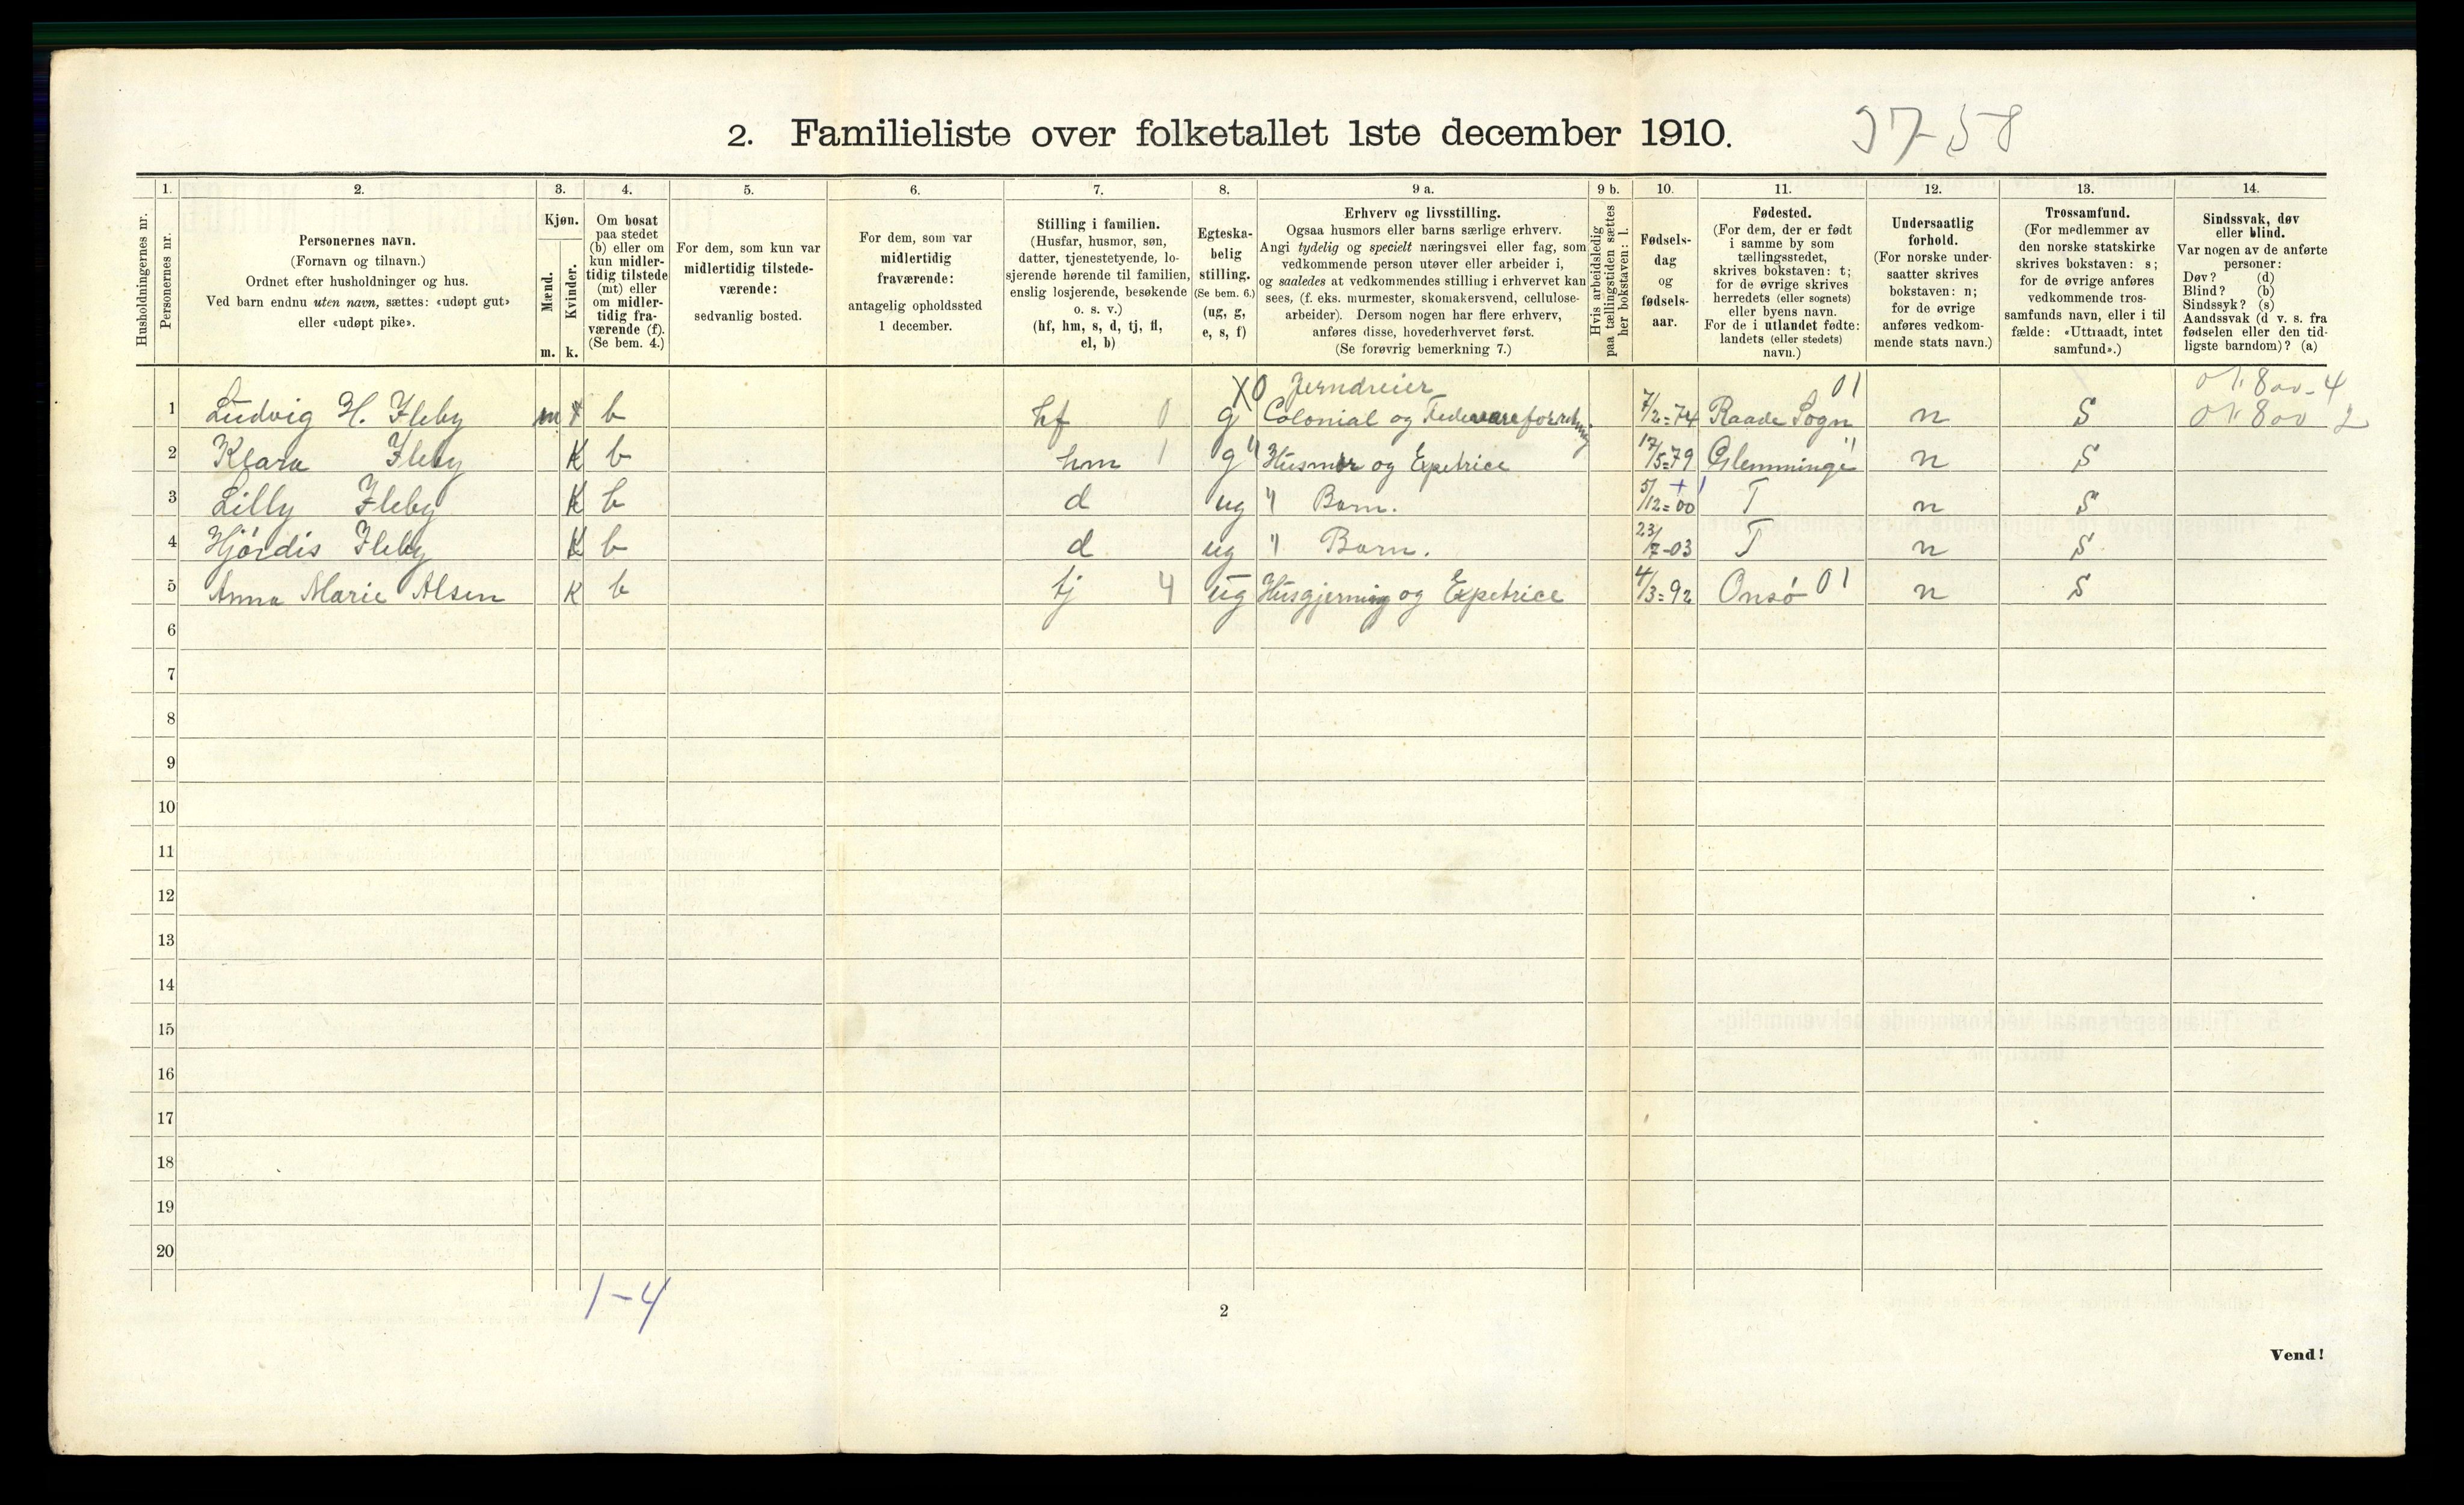 2. Familieliste over folketallet 1ste december 1910.
37-58
Husholdningernes nr.
1. Personernes nr.
2. Personernes navn.
(Fornavn og tilnavn.)
Ordnet efter husholdninger og hus.
Ved barn endnu uten navn, sættes: «udøpt gut»
eller «udøpt pike».
3. Kjøn.
Mænd. m.
Kvinder. k.
4. Om bosat
paa stedet
(b) eller om
kun midler-
tidig tilstede
(mt) eller
om midler-
tidig fra-
værende (f).
(Se bem. 4.)
5. For dem, som kun var
midlertidig tilstede-
værende:
sedvanlig bosted.
6. For dem, som var
midlertidig
fraværende:
antagelig opholdssted
1 december.
7. Stilling i familien.
(Husfar, husmor, søn,
datter, tjenestetyende, lo-
sjerende hørende til familien,
enslig losjerende, besøkende
o. s. v.)
(hf, hm, s, d, tj, fl,
el, b)
8. Egteska-
belig
stilling.
(Se bem. 6.)
(ug, g,
e, s, f)
9 a. Erhverv og livsstilling.
Ogsaa husmors eller barns særlige erhverv.
Angi tydelig og specielt næringsvei eller fag, som
vedkommende person utøver eller arbeider i,
og saaledes at vedkommendes stilling i erhvervet kan
sees, (f. eks. murmester, skomakersvend, cellulose-
arbeider). Dersom nogen har flere erhverv,
anføres disse, hovederhvervet først.
(Se forøvrig bemerkning 7.)
9 b. Hvis arbeidsledig
paa tællingstiden sættes
her bokstaven: l.
10. Fødsels-
dag
og
fødsels-
aar.
11. Fødested.
(For dem, der er født
i samme by som
tællingsstedet,
skrives bokstaven: t;
for de øvrige skrives
herredets (eller sognets)
eller byens navn.
For de i utlandet fødte:
landets (eller stedets)
navn.)
12. Undersaatlig
forhold.
(For norske under-
saatter skrives
bokstaven: n;
for de øvrige
anføres vedkom-
mende stats navn.)
13. Trossamfund.
(For medlemmer av
den norske statskirke
skrives bokstaven: s;
for de øvrige anføres
vedkommende tros-
samfunds navn, eller i til
fælde: «Uttraadt, intet
samfund».)
14. Sindssvak, døv
eller blind.
Var nogen av de anførte
personer:
Døv? (d)
Blind? (b)
Sindssyk? (s)
Aandssvak (d v. s. fra
fødselen eller den tid-
ligste barndom)? (a)
X0 Jerndreier 01
1 Ludvig H. Fleby m b hf 0 g Colonial og 7/2=74 Raade Sogn n S
2 Klara Fleby K b hm 1 g " Husmor og Expetrice 17/5=79 Glemminge " n S
3 Lilly Fleby K b d ug " Barn. 5/12=00 T n S
4 Hjørdis Fleby K b d ug " Barn. 23/7-03 T n S
5 Anna Marie Alsen K b tj 4 ug Husgjerning og Expetrice 4/3=92 Onsø 01 n S
6
7
8
9
10
11
12
13
14
15
16
17
18
19
20
1-4
2
Vend!